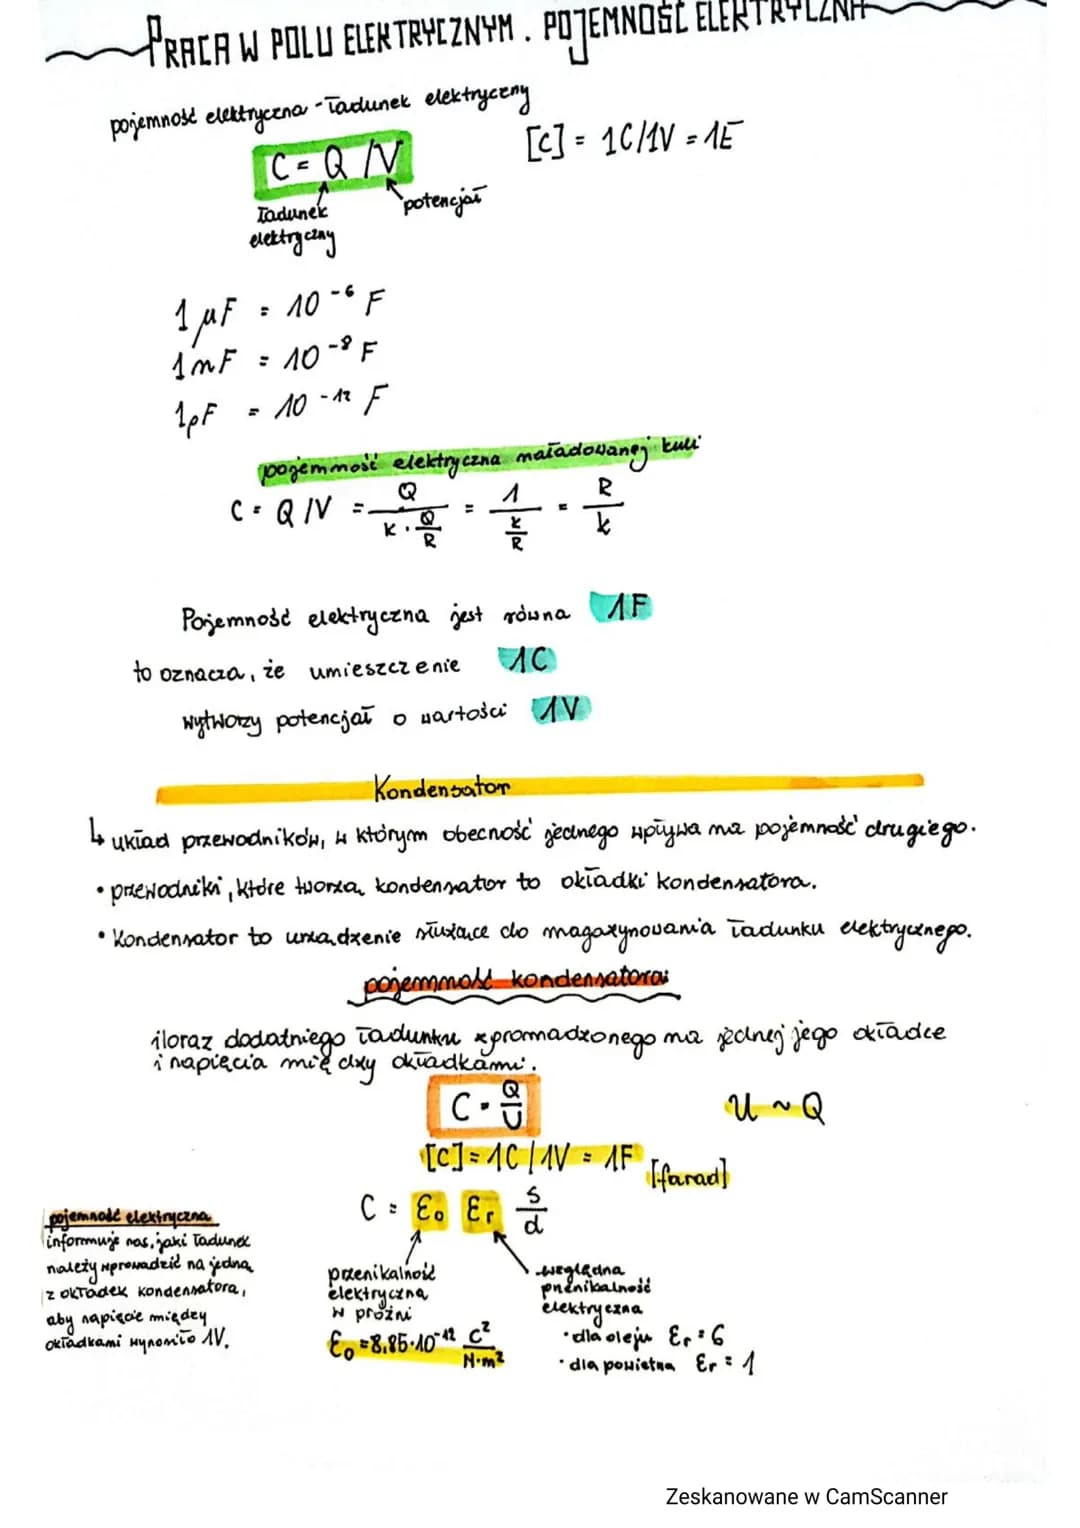 PRACA W POLU ELEKTRYCZNYM. POJEMNOŚĆ ELEKTRYCZNA
pojemność elektryczna - ładunek elektryczny
C = Q/V
[C] = 1C/1V = 1F
ładunek elektryczny
potencjał
1 μF = 10⁻⁶ F
1nF = 10⁻⁹ F
1pF = 10⁻¹² F
pojemność elektryczna naładowanej kuli
C = Q/V = Q / (k · Q/R) = 1 / (k/R) = R/k
Pojemność elektryczna jest równa 1F
to oznacza, że umieszczenie 1C
wytworzy potencjał o wartości 1V
Kondensator
↳ układ przewodników, w którym obecność jednego wpływa na pojemność drugiego.
• przewodniki, które tworzą kondensator to okładki kondensatora.
• Kondensator to urządzenie służące do magazynowania ładunku elektrycznego.
pojemność kondensatora:
iloraz dodatniego ładunku zgromadzonego na jednej jego okładce
i napięcia między okładkami.
C = Q/U
U ~ Q
[C] = 1C/1V = 1F [farad]
C = ε₀ εᵣ S/d
pojemność elektryczna
informuje nas, jaki ładunek
należy wprowadzić na jedną
z okładek kondensatora,
aby napięcie między
okładkami wynosiło 1V.
przenikalność
elektryczna
w próżni
ε₀ = 8,85·10⁻¹² C²/N·m²
względna
przenikalność
elektryczna
• dla oleju εᵣ = 6
• dla powietrza εᵣ = 1
Zeskanowane w CamScanner